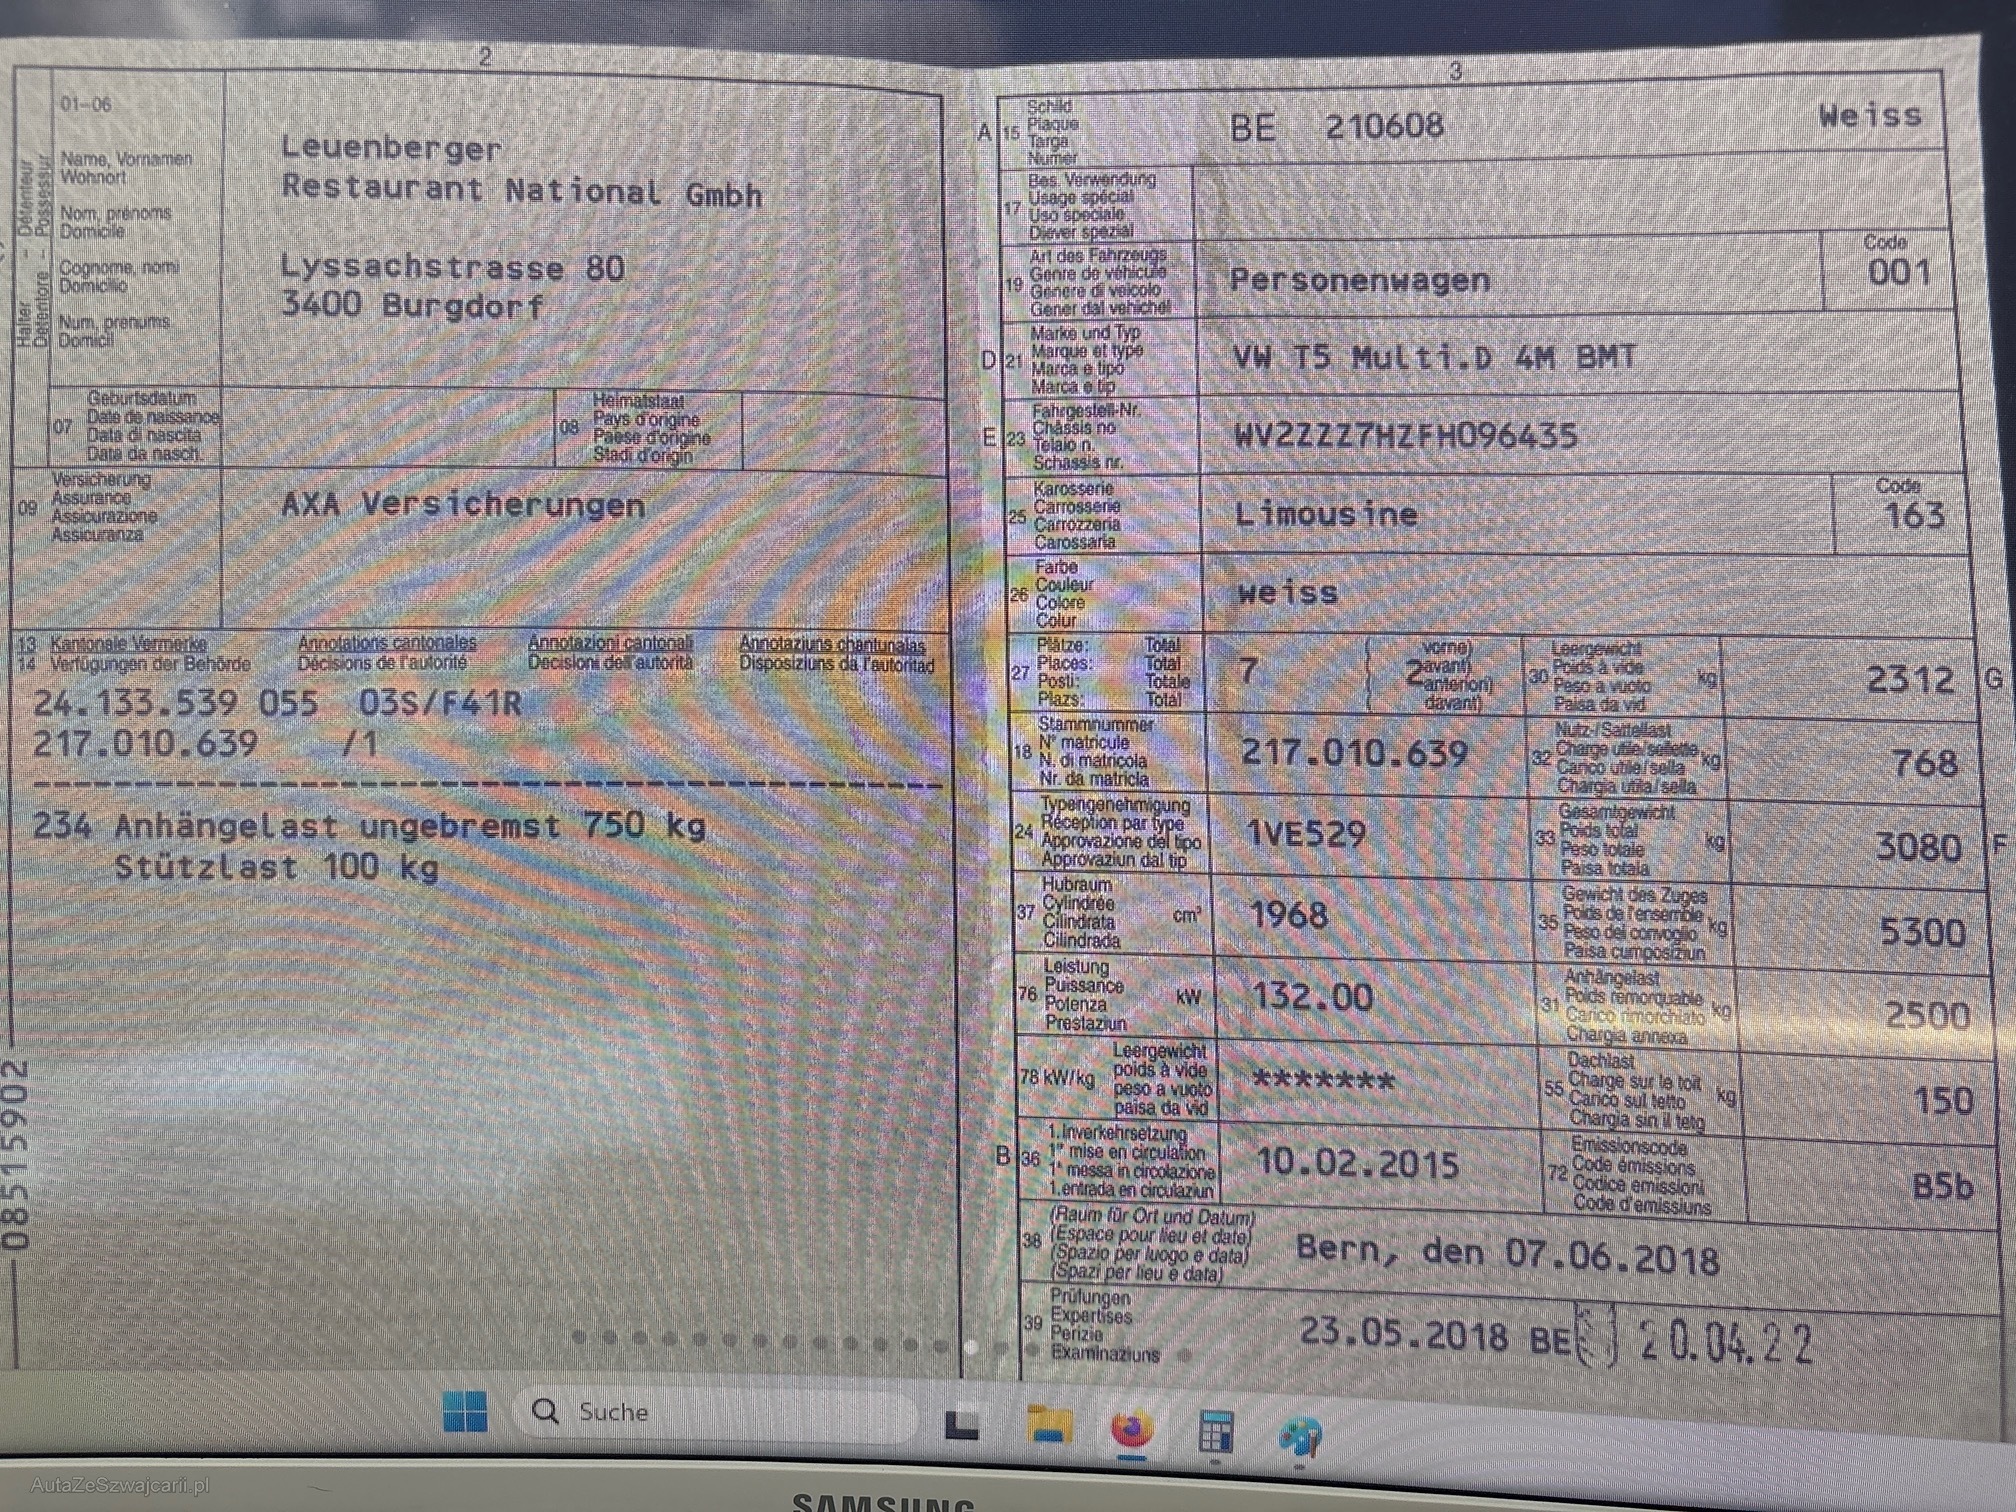 2
01-06
Halter - Détenteur
Detentore - Possessur
Name, Vornamen
Wohnort
Nom, prénoms
Domicile
Cognome, nomi
Domicilio
Num, prenums
Domicil
Leuenberger
Restaurant National Gmbh
Lyssachstrasse 80
3400 Burgdorf
07
Geburtsdatum
Date de naissance
Data di nascita
Data da nasch.
08
Heimatstaat
Pays d'origine
Paese d'origine
Stadi d'origin
09
Versicherung
Assurance
Assicurazione
Assicuranza
AXA Versicherungen
13 Kantonale Vermerke Annotations cantonales Annotazioni cantonali Annotaziuns chantunalas
14 Verfügungen der Behörde Décisions de l'autorité Decisioni dell'autorità Disposiziuns da l'autoritad
24.133.539 055 03S/F41R
217.010.639 /1
234 Anhängelast ungebremst 750 kg
Stützlast 100 kg
08515902
3
A 15
Schild
Plaque
Targa
Numer
BE 210608 Weiss
17
Bes. Verwendung
Usage spécial
Uso speciale
Diever spezial
19
Art des Fahrzeugs
Genre de véhicule
Genere di veicolo
Gener dal vehichel
Personenwagen
Code
001
D 21
Marke und Typ
Marque et type
Marca e tipo
Marca e tip
VW T5 Multi.D 4M BMT
E 23
Fahrgestell-Nr.
Châssis no
Telaio n.
Schassis nr.
WV2ZZZ7HZFH096435
25
Karosserie
Carrosserie
Carrozzeria
Carossaria
Limousine
Code
163
26
Farbe
Couleur
Colore
Colur
weiss
27
Plätze: Total
Places: Total
Posti: Totale
Plazs: Total
7
2
vorne)
avant)
anteriori)
davant)
30
Leergewicht
Poids à vide
Peso a vuoto
Paisa da vid
kg
2312
G
18
Stammnummer
N° matricule
N. di matricola
Nr. da matricla
217.010.639
32
Nutz-/Sattellast
Charge utile/sellette
Carico utile/sella
Chargia utila/sella
kg
768
24
Typengenehmigung
Réception par type
Approvazione del tipo
Approvaziun dal tip
1VE529
33
Gesamtgewicht
Poids total
Peso totale
Paisa totala
kg
3080
F
37
Hubraum
Cylindrée
Cilindrata
Cilindrada
cm³
1968
35
Gewicht des Zuges
Poids de l'ensemble
Peso del convoglio
Paisa cumposiziun
kg
5300
76
Leistung
Puissance
Potenza
Prestaziun
kW
132.00
31
Anhängelast
Poids remorquable
Carico rimorchiato
Chargia annexa
kg
2500
78 kW/kg
Leergewicht
poids à vide
peso a vuoto
paisa da vid
*******
55
Dachlast
Charge sur le toit
Carico sul tetto
Chargia sin il tetg
kg
150
B 36
1. Inverkehrsetzung
1re mise en circulation
1a messa in circolazione
1. entrada en circulaziun
10.02.2015
72
Emissionscode
Code émissions
Codice emissioni
Code d'emissiuns
B5b
38
(Raum für Ort und Datum)
(Espace pour lieu et date)
(Spazio per luogo e data)
(Spazi per lieu e data)
Bern, den 07.06.2018
39
Prüfungen
Expertises
Perizie
Examinaziuns
23.05.2018 BE 20.04.22
Suche
AutaZeSzwajcarii.pl
SAMSUNG